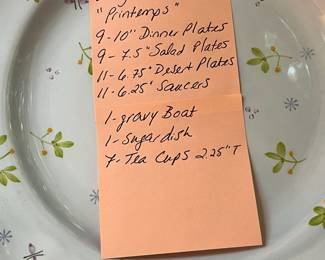 "Printemps"
9-10" Dinner Plates
9-7.5" Salad Plates
11-6.75" Desert Plates
11-6.25" Saucers
1-gravy Boat
1-Sugar dish
7-Tea Cups 2.25"T